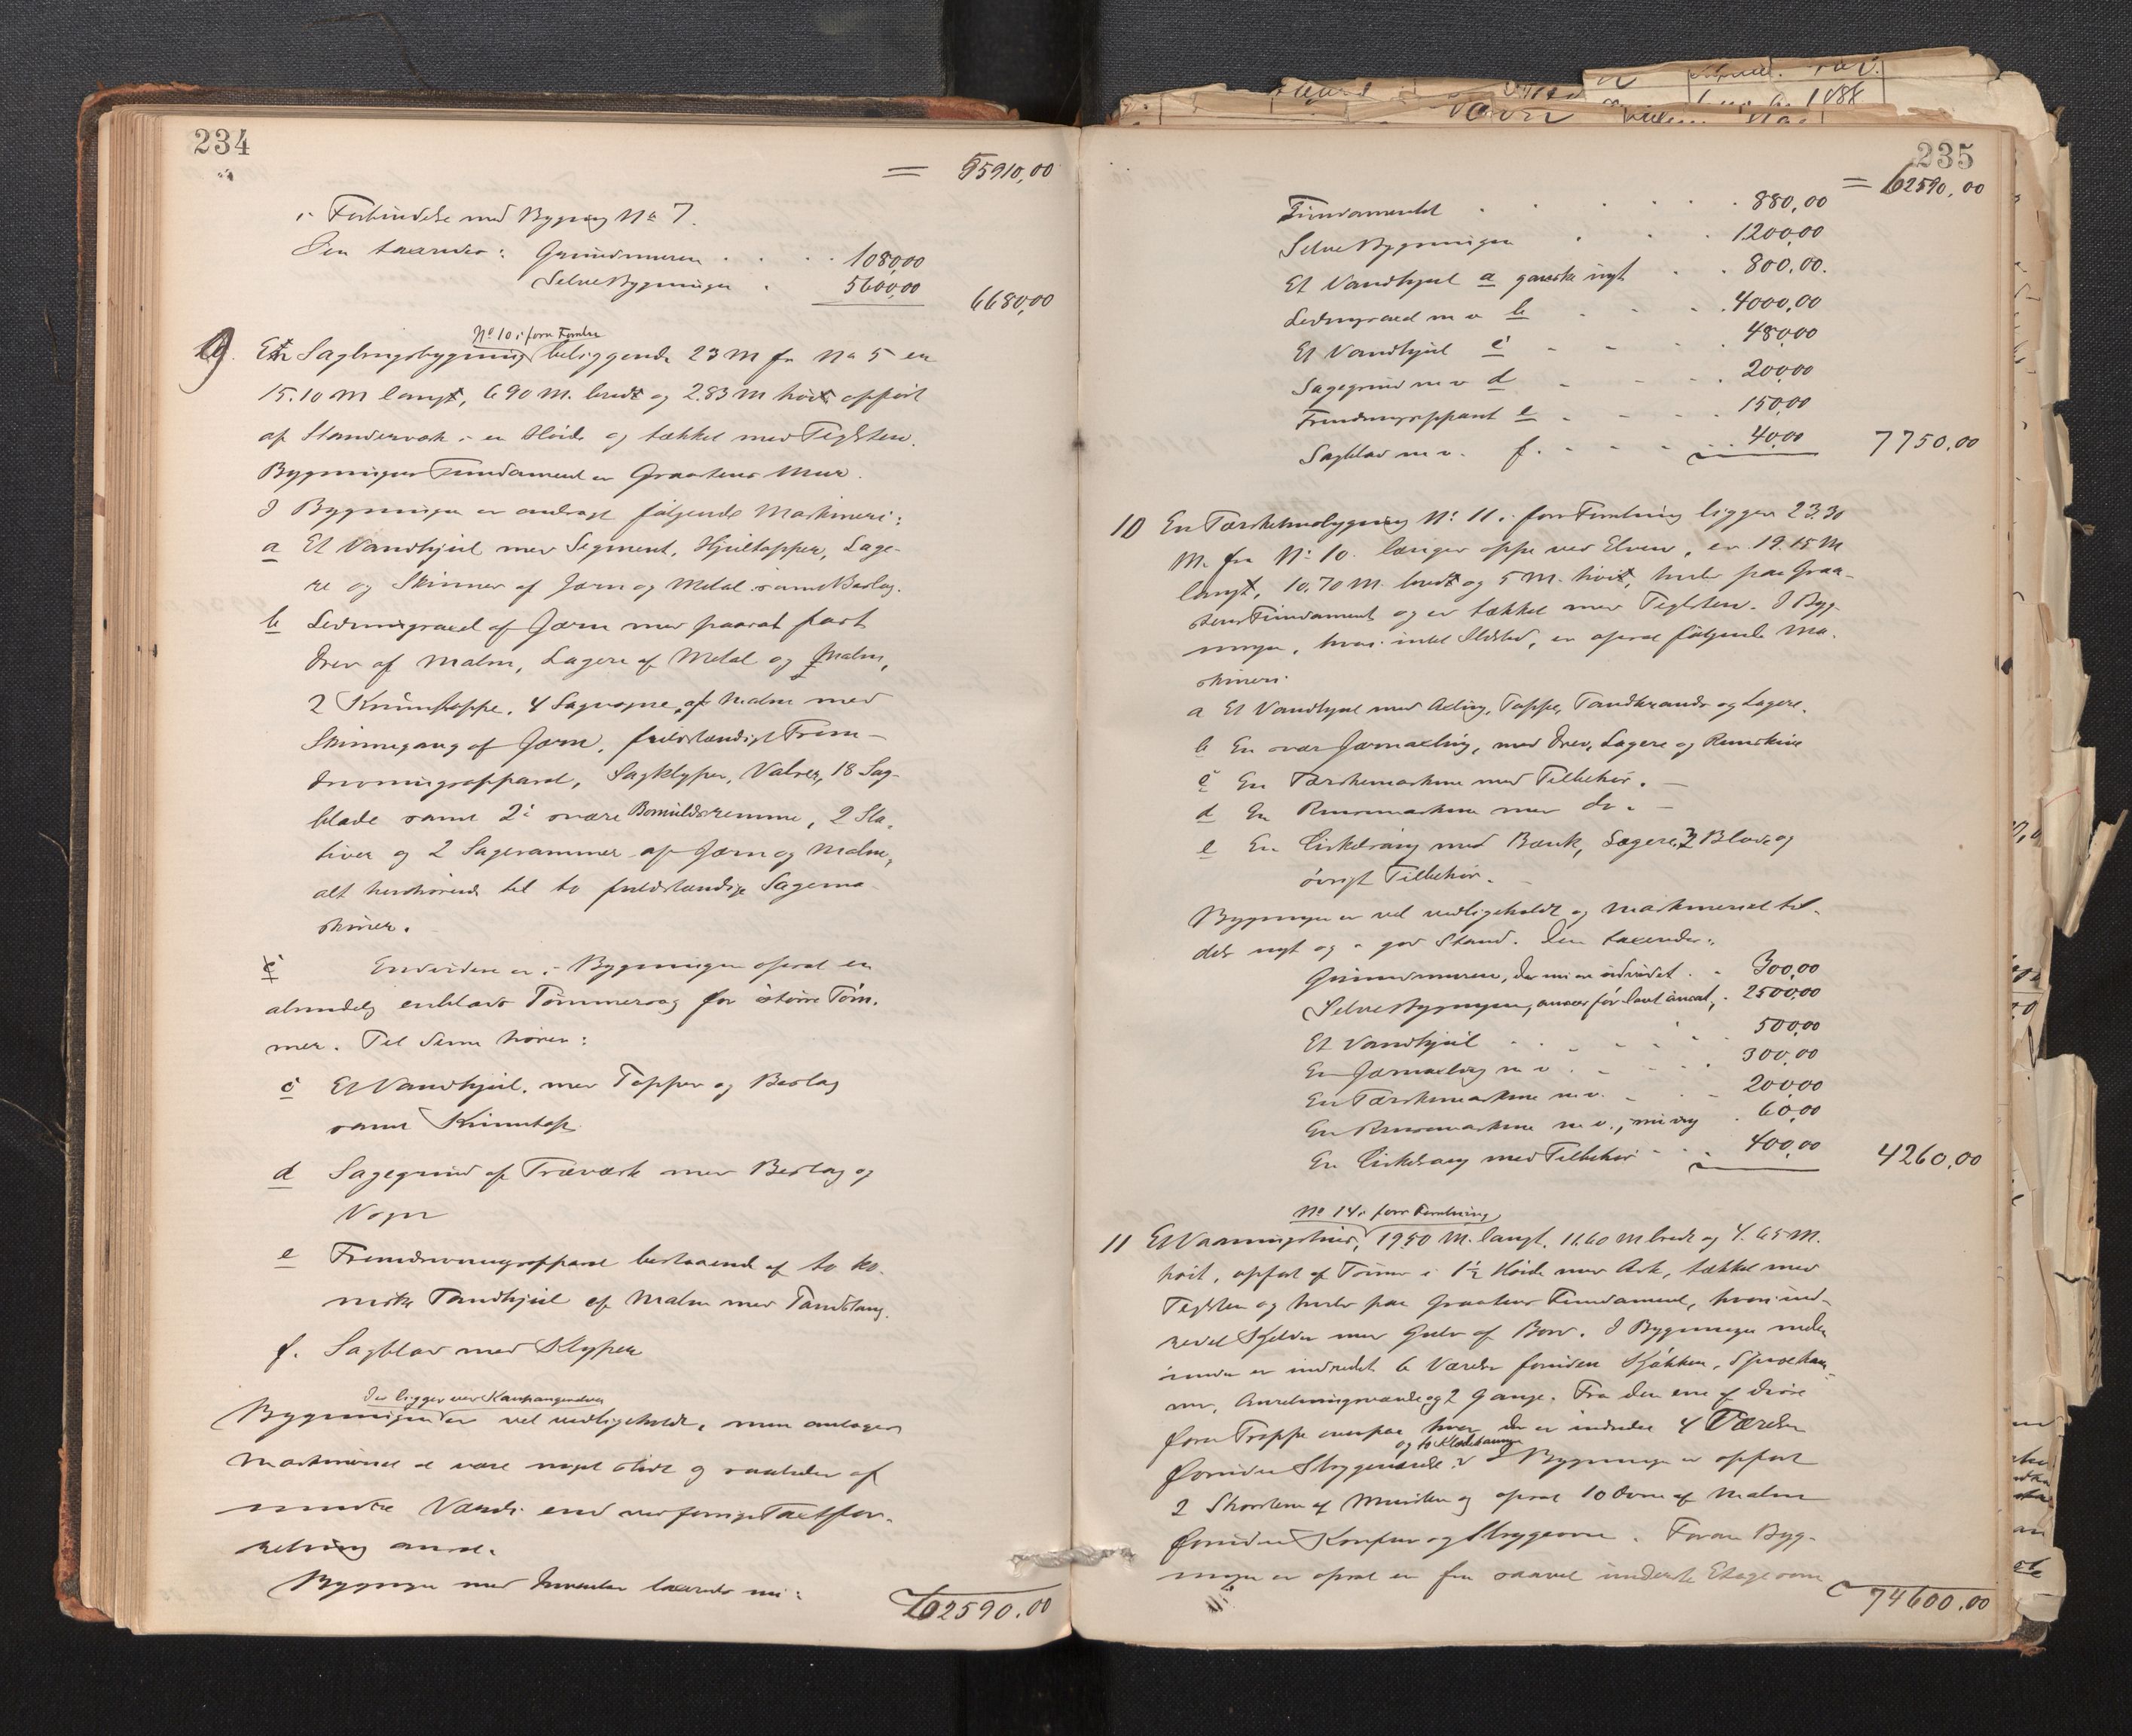 234
= 55910,00
i Forbindelse med Bygning No 7.
Den taxeredes: Grundmuren . . . 1080,00
Selve Bygningen . 5600,00 6680,00
No 10 i forr Forretn
9. En Sagbrugsbygning beliggende 23 M fra No 5 er
15.10 M lang, 6.90 M. bred og 2.83 M høi, opført
af Standerværk i en Høide og tækket med Teglsten.
Bygningens Fundament er Graastens Mur.
I Bygningen er anbragt følgende Maskineri:
a Et Vandhjul med Segment, Hjultapper, Lage-
re og Skinner af Jern og Metal samt Beslag.
b Ledningsaxel af Jern med paasat fast
Drev af Malm, Lagere af Metal og Malm,
2 Krumtappe, 4 Sagvogne af Malm med
Skinnegang af Jern, fuldstændigt Frem-
drivningsapparat, Sagklyper, Valser, 18 Sag-
blade samt 2 svære Bomuldsremme, 2 Sta-
tiver og 2 Sagerammer af Jern og Malm,
alt henhørende til to fuldstændige Sagema-
skiner.
Endvidere er i Bygningen opsat en
almindelig enblads Tømmersag for større Tøm-
mer. Til denne hører:
c Et Vandhjul, med Tapper og Beslag
samt Krumtap
d Sagegrind af Træværk med Beslag og
Vogn
e Fremdrivningsapparat bestaaende af to ko-
niske Tandhjul af Malm med Tandstang.
f. Sagblad med Klyper
der ligger ved Kaupangerelven
Bygningen er vel vedligeholdt, men antages
Maskineriet at være noget slidt og saaledes af
mindre Værdi end ved forrige Taxtfor-
retning ansat.
Bygningen med Inventar taxeredes nu:
62590.00
235
= 62590,00
Fundamentet . . . . . 880,00
Selve Bygningen . . . 1200,00
Et Vandhjul a ganske nyt . . 800,00.
Ledningsaxel m v b . . . 4000,00
Et Vandhjul c - - . 480,00
Sagegrind m v d - - . 200,00
Fremdrivningsapparat e . - - . 150,00
Sagblad m v. f. - - - . . 40,00 7750,00
10 En Tærskehusbygning No 11 i forr Forretning ligger 23.30
M. fra No 10. længer oppe ved Elven, er 19.15 M
lang, 10,70 M. bred og 5 M. høi, hviler paa Graa-
stensFundament og er tækket med Teglsten. I Byg-
ningen, hvor intet Ildsted, er opsat følgende Ma-
skineri.
a Et Vandhjul med Axling, Tappe, Tandkrands og Lagere.
b En svær Jernaxling, med Drev, Lagere og Remskive
c En Tærskemaskine med Tilbehør. -
d En Rensemaskine med do. -
e En Cirkelsag med Bænk, Lagere, 3 Blade og
øvrigt Tilbehør. -
Bygningen er vel vedligeholdt og Maskineriet til-
dels nyt og i god Stand. Den taxeredes:
Grundmuren, der nu er udvidet . . 300,00
Selve Bygningen, ansees før lavt ansat, . 2500,00
Et Vandhjul . . . . . 500,00
En Jernaxling m v . . . . 300,00
En Tærskemaskine m v. - . - 200,00
En Rensemaskine m v., - . 60,00
En Cirkelsag med Tilbehør - . . 400,00 4260,00
No 14 i forr Forretning
11 Et Vaaningshus, 19.50 M. langt, 11.60 M bredt og 4.65 M.
høit, opført af Tømmer i 1½ Høide med Ark, tækket med
Teglsten og hviler paa Graastens Fundament, hvori ind-
redet Kjelder med Gulv af Bord. I Bygningen neden-
under er indredet 6 Værelser foruden Kjøkken, Spisekam-
mer, Anretningsværelse og 2 Gange. Fra den ene af disse
fører Trappe ovenpaa hvor der er indredet 4 Værelser
og to Klædekamre
foruden Strygeværelse. I Bygningen er opført
2 Skorstene af Mursten og opsat 10 Ovne af Malm
foruden Komfur og Strygeovn. Foran Byg-
ningen er opsat en fra saavel underste Etage som
74600.00